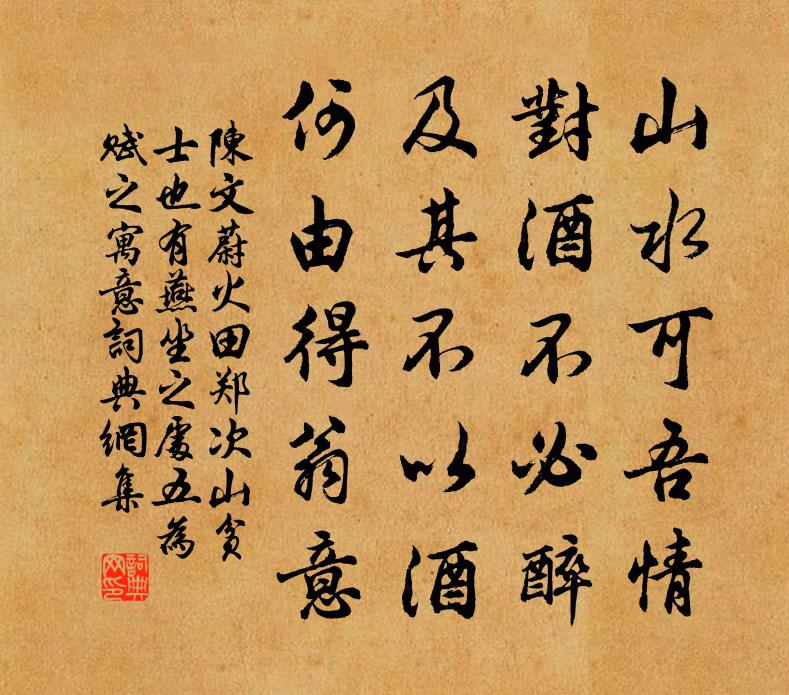 山水可吾情
對酒不必醉
及其不以酒
何由得翁意
陳文蔚火田郑次山貧
士也有燕坐之處五為
賦之寓意詞典網集
詞典网印